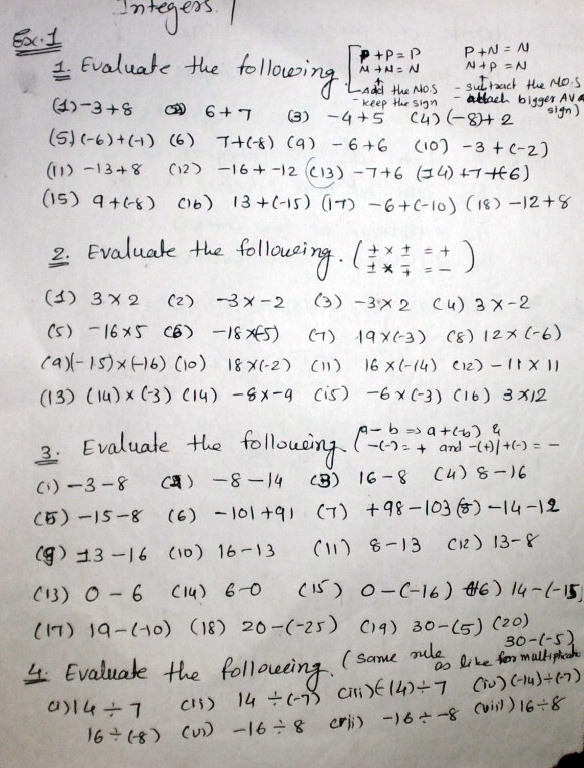 Integers.
Ex.1
1. Evaluate the following [P+P=P P+N=N
N+N=N N+P=N
Add the NO.S - subtract the NO.S
keep the sign - attach bigger AV a sign)
(1) -3+8 (2) 6+7 (3) -4+5 (4) (-8)+2
(5) (-6)+(-1) (6) 7+(-8) (9) -6+6 (10) -3+(-2)
(11) -13+8 (12) -16+-12 (13) -7+6 (14) +7+(6)
(15) 9+(-8) (16) 13+(-15) (17) -6+(-10) (18) -12+8
2. Evaluate the following. (± × ± = +
± × ∓ = -)
(1) 3×2 (2) -3×-2 (3) -3×2 (4) 3×-2
(5) -16×5 (6) -18×(5) (7) 19×(-3) (8) 12×(-6)
(9) (-15)×(-16) (10) 18×(-2) (11) 16×(-14) (12) -11×11
(13) (14)×(-3) (14) -8×-9 (15) -6×(-3) (16) 3×12
3. Evaluate the following (a-b => a+(-b) &
-(-) = + and -(+)/+(-) = -
(1) -3-8 (2) -8-14 (3) 16-8 (4) 8-16
(5) -15-8 (6) -101+91 (7) +98-103 (8) -14-12
(9) 13-16 (10) 16-13 (11) 8-13 (12) 13-8
(13) 0-6 (14) 6-0 (15) 0-(-16) (16) 14-(-15)
(17) 19-(-10) (18) 20-(-25) (19) 30-(5) (20) 30-(-5)
4. Evaluate the following. (same rule as like for multiplicate
(i) 14÷7 (ii) 14÷(-7) (iii) (-14)÷7 (iv) (-14)÷(-7)
16÷(-8) (vi) -16÷8 (vii) -16÷-8 (viii) 16÷8